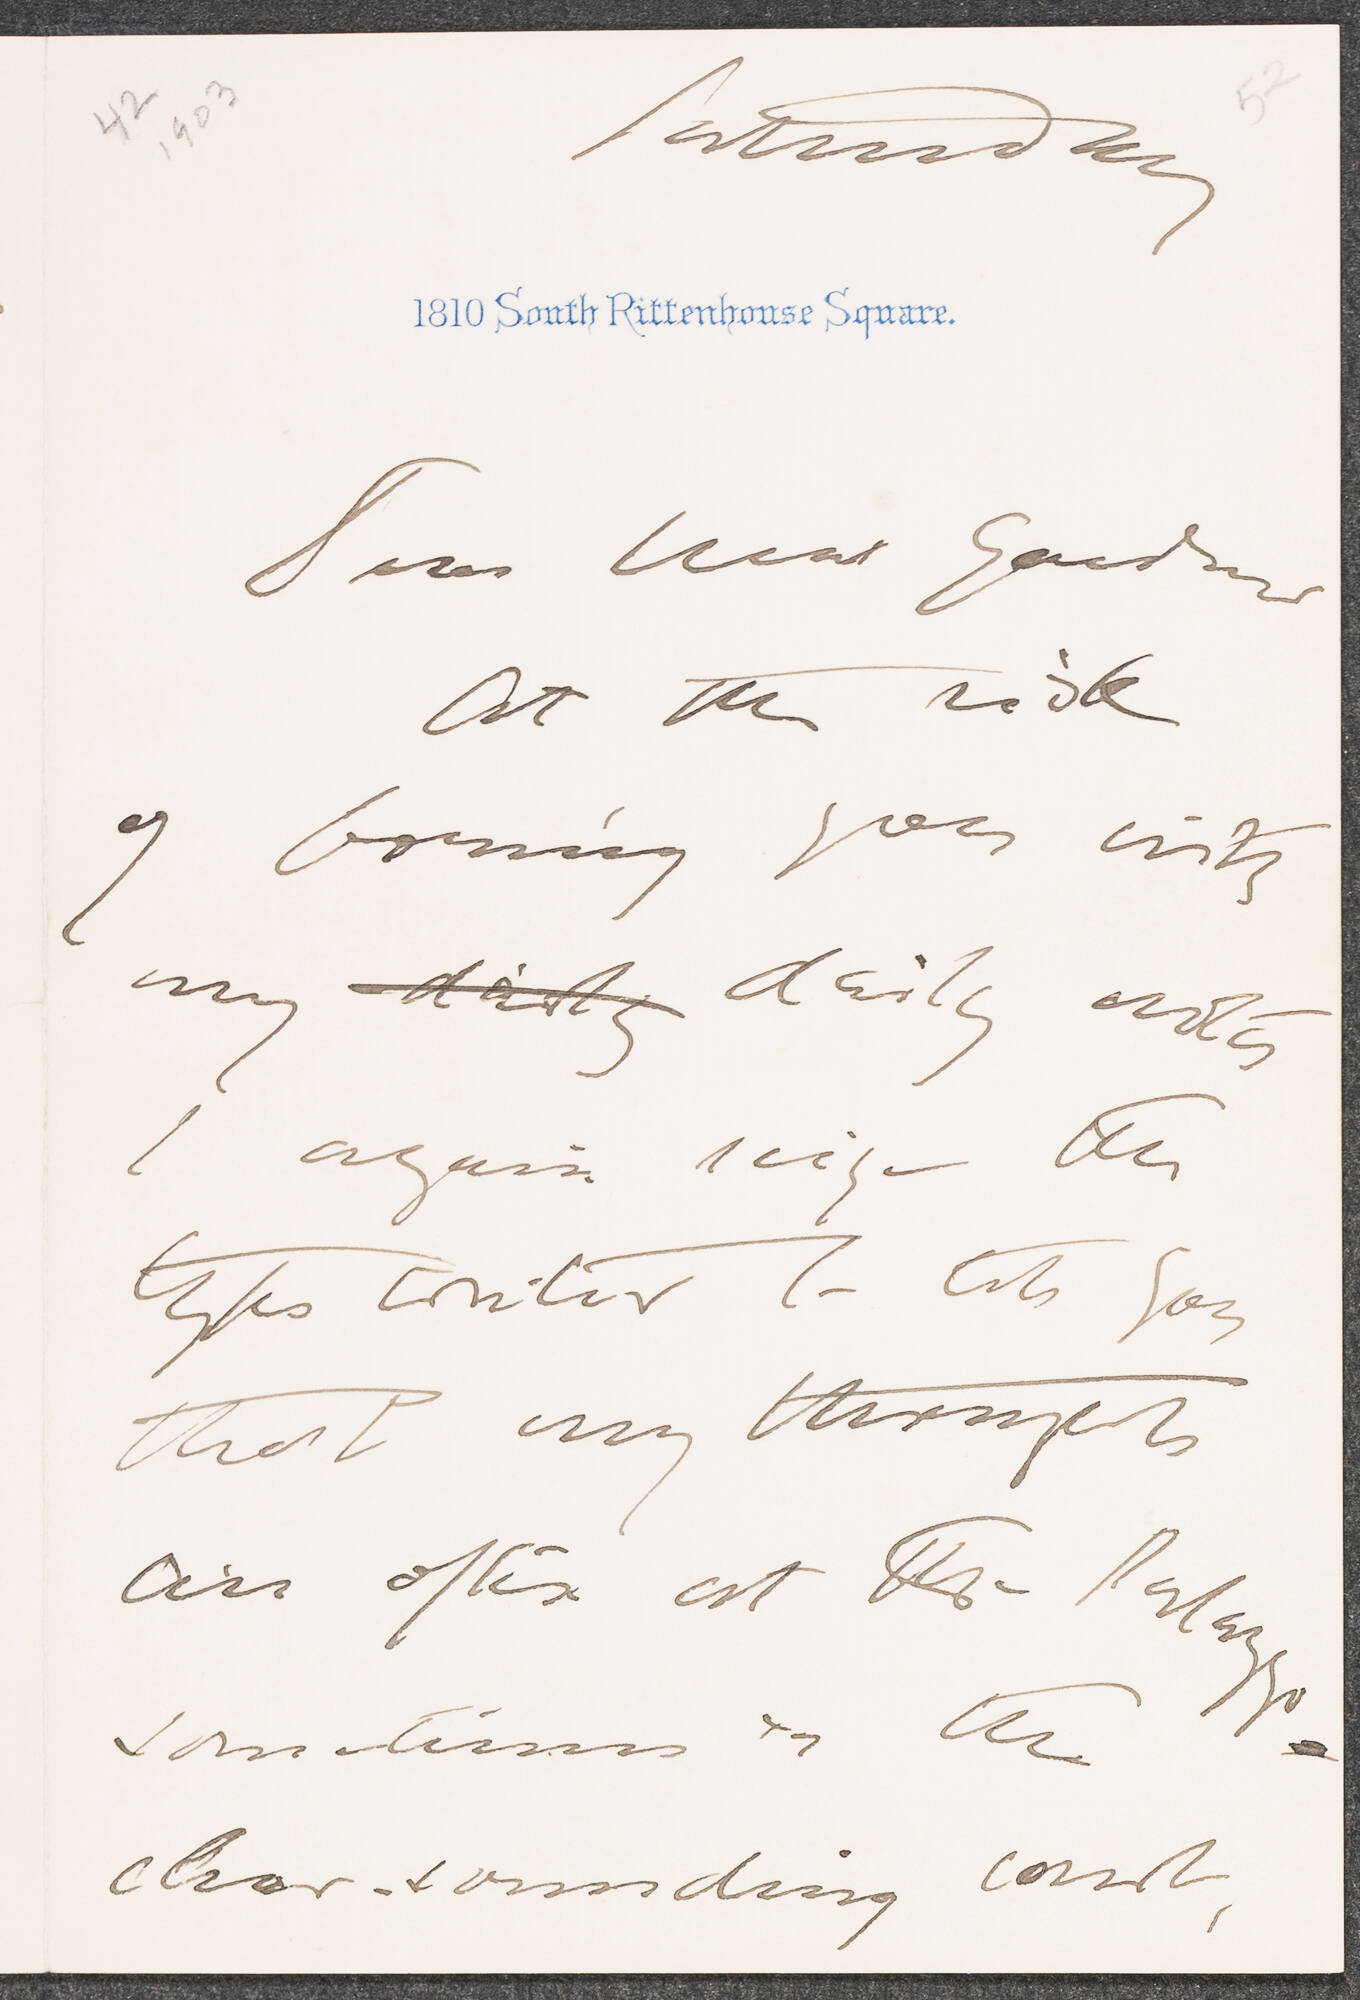 42
1903
52
Saturday
1810 South Rittenhouse Square.
Dear Mrs Gardner
At the risk
of boring you with
my dirty daily notes
I again seize the
type writer to tell you
that my thoughts
are often at the Palazzo -
sometimes in the
clear-sounding court,